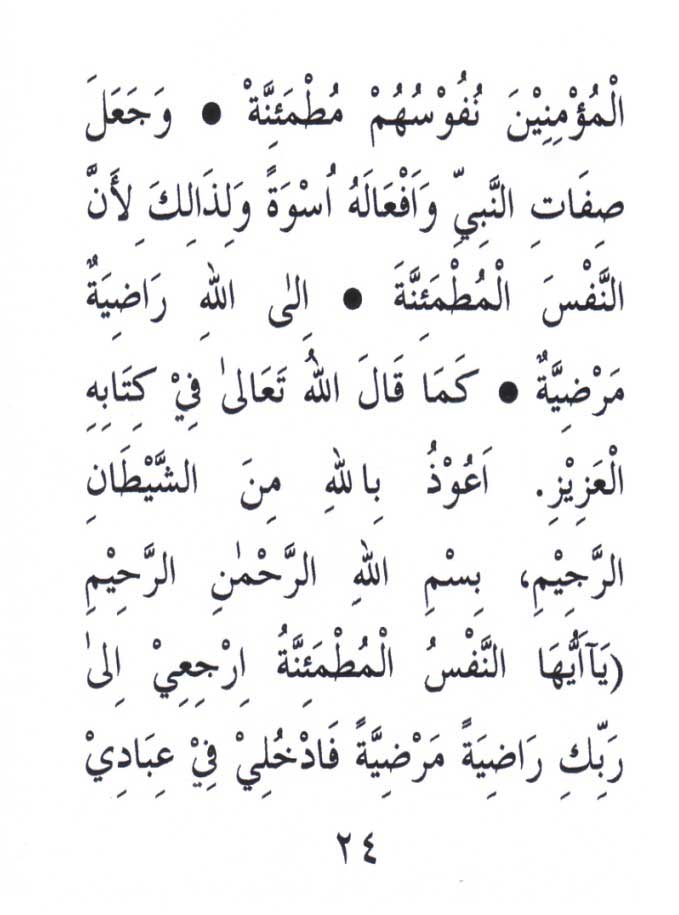 الْمُؤْمِنِيْنَ نُفُوْسُهُمْ مُطْمَئِنَّةْ ● وَجَعَلَ
صِفَاتِ النَّبِيِّ وَاَفْعَالَهُ اُسْوَةً وَلِذَالِكَ لِأَنَّ
النَّفْسَ الْمُطْمَئِنَّةَ ● اِلٰى اللهِ رَاضِيَةٌ
مَرْضِيَّةٌ ● كَمَا قَالَ اللهُ تَعَالىٰ فِيْ كِتَابِهِ
الْعَزِيْزِ. اَعُوْذُ بِاللهِ مِنَ الشَّيْطَانِ
الرَّجِيْمِ، بِسْمِ اللهِ الرَّحْمٰنِ الرَّحِيْمِ
(يَآاَيُّهَا النَّفْسُ الْمُطْمَئِنَّةُ اِرْجِعِيْ اِلىٰ
رَبِّكِ رَاضِيَةً مَرْضِيَّةً فَادْخُلِيْ فِيْ عِبَادِيْ
٢٤